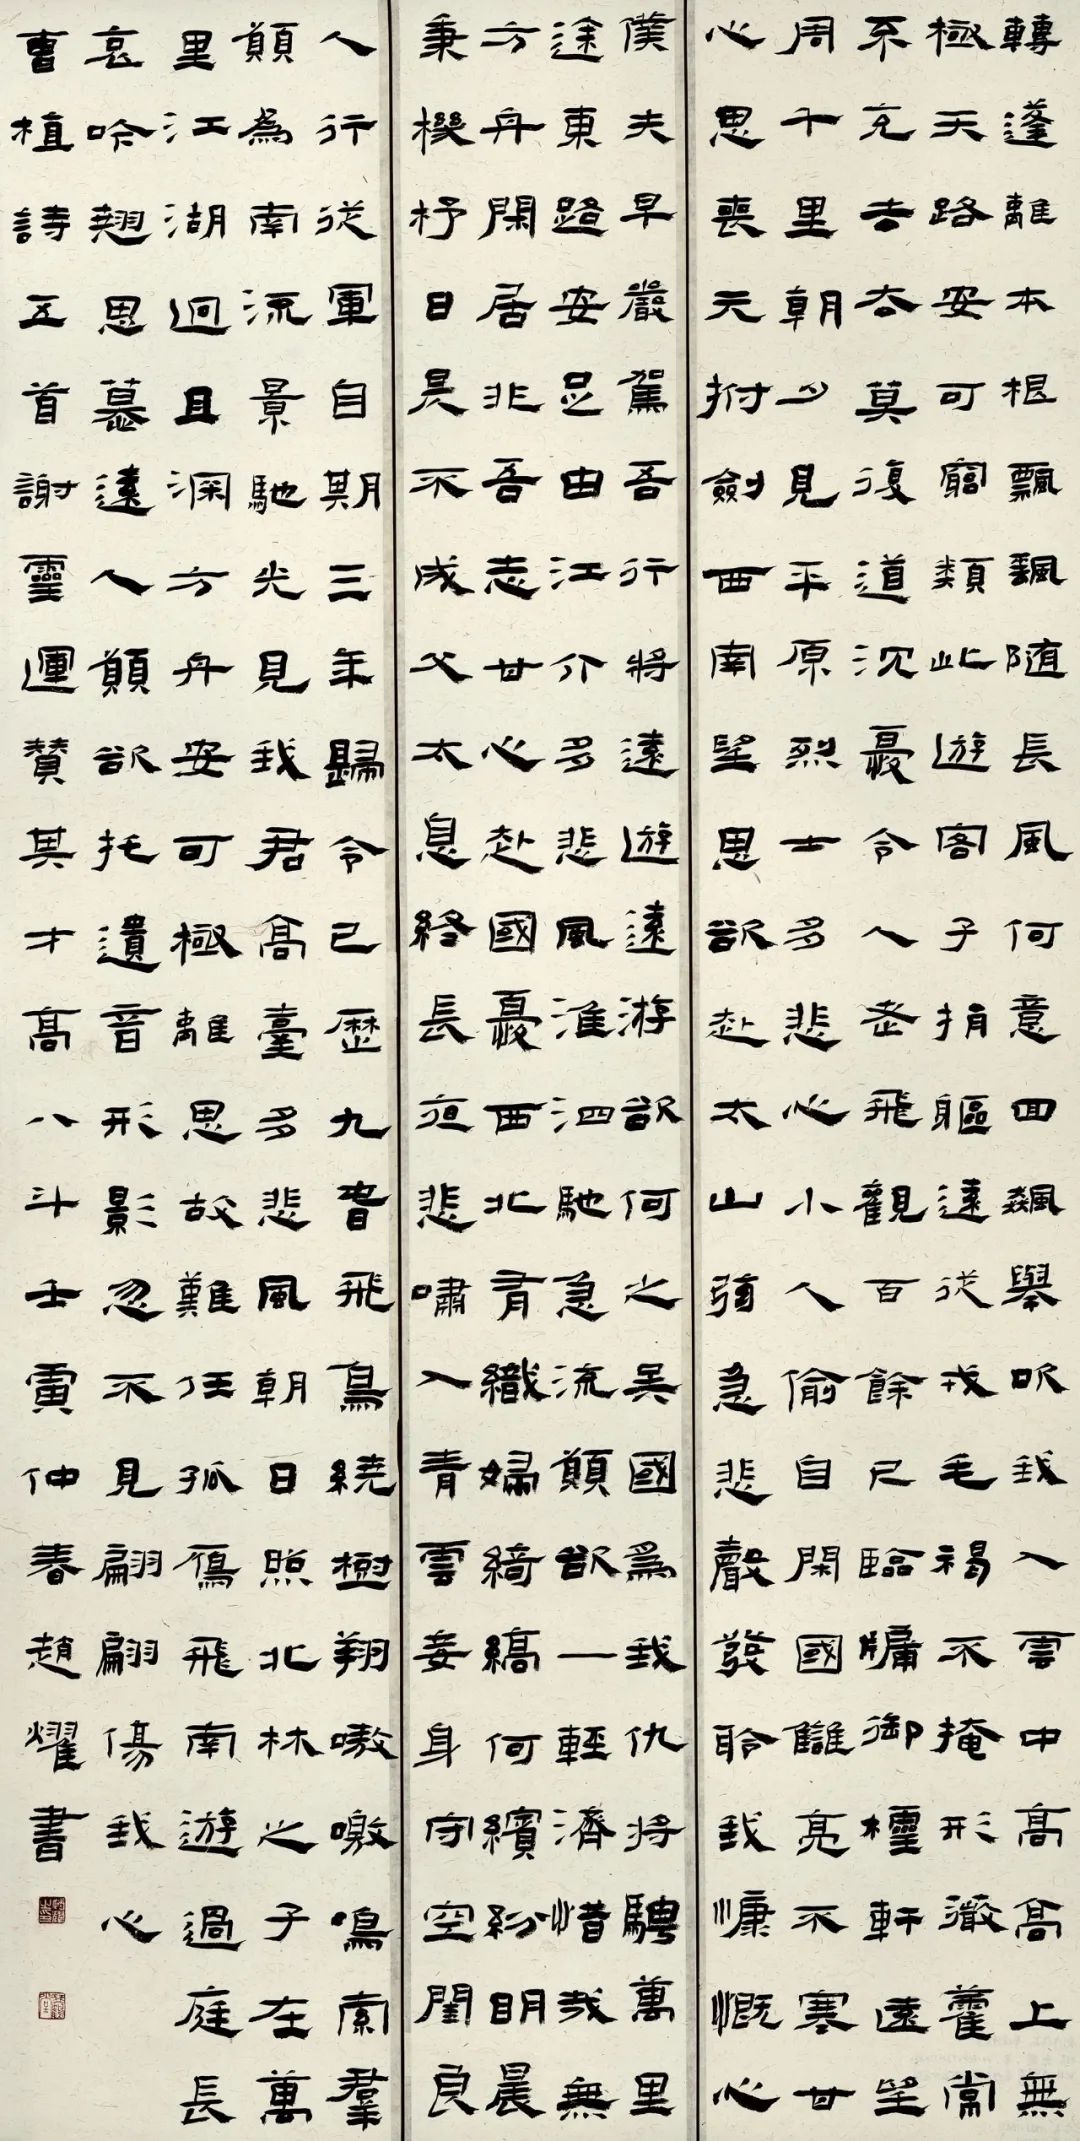 轉蓬離本根飄颻隨長風何意回飆舉吹我入雲中高高上無
極天路安可窮類此遊客子捐軀遠從戎毛褐不掩形薇藿常
不充去去莫復道沈憂令人老飛觀百餘尺臨牖御櫺軒遠望
周千里朝夕見平原烈士多悲心小人偷自閑國讎亮不塞甘
心思喪元拊劍西南望思欲赴太山弦急悲聲發聆我慷慨心
僕夫早嚴駕吾行將遠遊遠游欲何之吳國為我仇將騁萬里
途東路安足由江介多悲風淮泗馳急流願欲一輕濟惜哉無
方舟閑居非吾志甘心赴國憂西北有織婦綺縞何繽紛明晨
秉機杼日昃不成文太息終長夜悲嘯入青雲妾身守空閨良
人行從軍自期三年歸今已歷九春飛鳥繞樹翔噭噭鳴索羣
願為南流景馳光見我君高臺多悲風朝日照北林之子在萬
里江湖迥且深方舟安可極離思故難任孤鴈飛南遊過庭長
哀吟翹思慕遠人願欲托遺音形影忽不見翩翩傷我心
曹植詩五首謝靈運贊其才高八斗壬寅仲春趙耀書